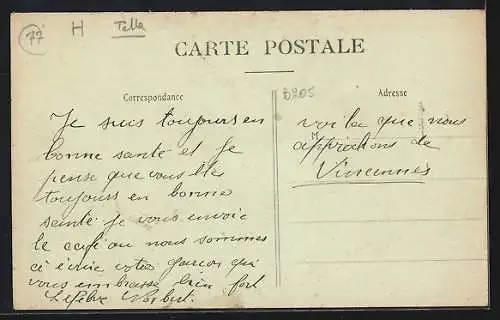 77 H Tella
CARTE POSTALE
B205
Correspondance
Adresse
Je suis toujours en
bonne santé et je
pense que vous
toujours en bonne
santé je vous envoie
le café ou nous sommes
votre garcon qui
vous embrasse bien fort
Lefebvre Norbert.
voila que nous
approchons de
Vincennes